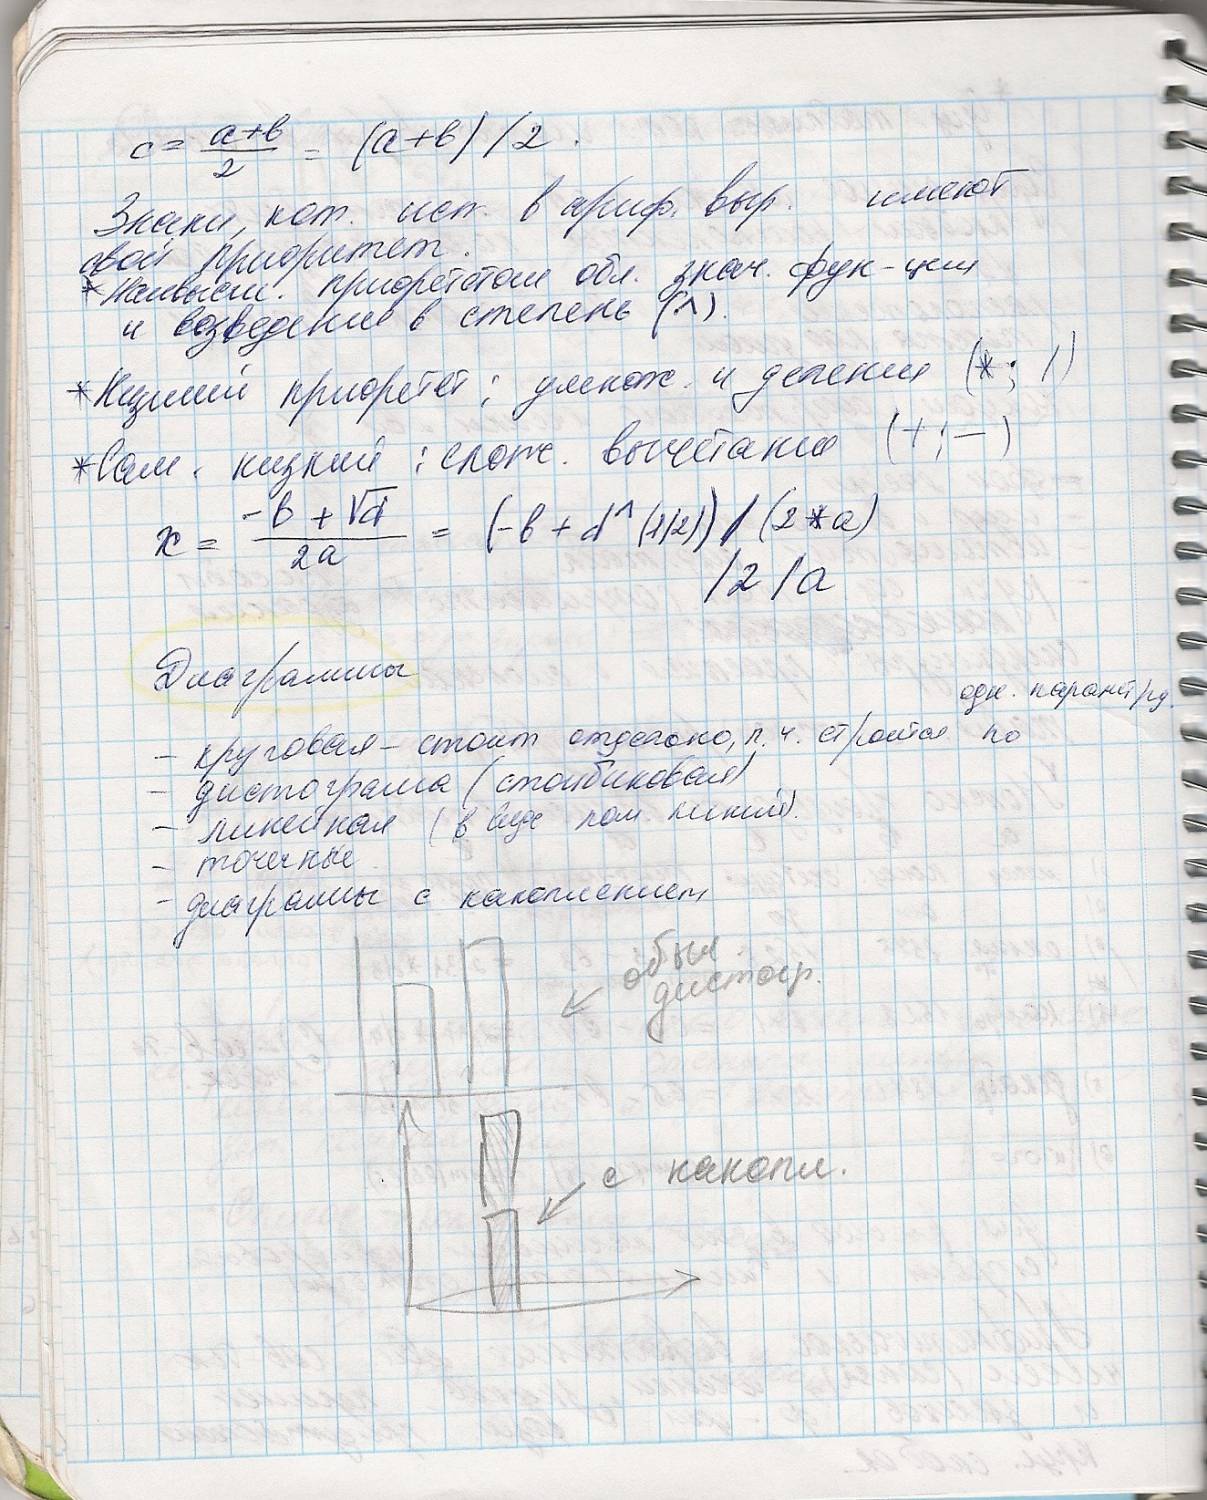 c = a+b/2 = (a+b)/2.
Знаки, кот. исп. в ариф. выр. имеют
свой приоритет.
*Наивысш. приоретстом обл. знач. фук-ции
и возведение в степень (^).
*Низший приоретет; умнож. и деления (*; /)
*Сам. низкий: слож. вычетания (+;-)
x = -b + √d/2a = (-b + d^(1/2))/(2*a)
/2/a
Диаграммы
одн. парамет/ряд.
- круговая - стоит отдельно, п.ч. строится по
- гистограма (столбиковая)
- линейная (в виде лом. линий).
- точечные
- диаграммы с накоплением
обыч.
гистогр.
с накопл.